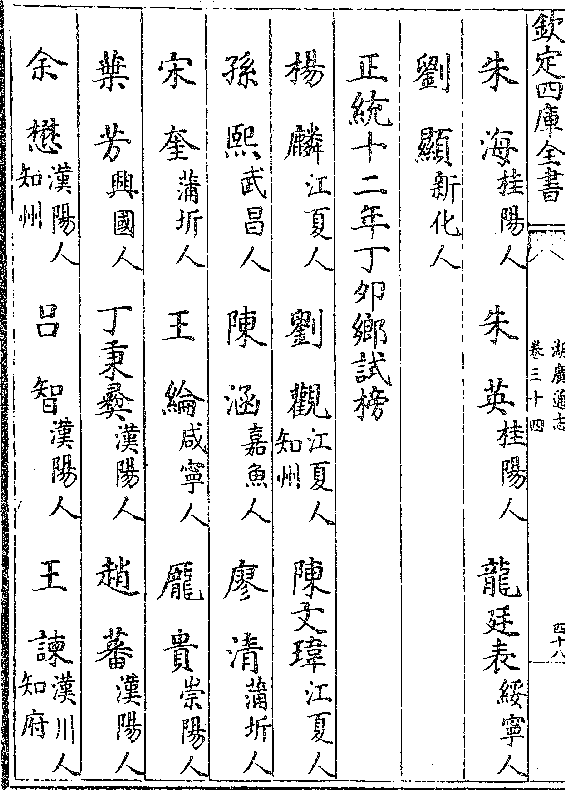 欽定四庫全書
湖廣通志
卷三十四
四十八
朱海桂陽人 朱英桂陽人 龍廷表綏寧人
劉顯新化人
正統十二年丁卯鄉試榜
楊麟江夏人 劉觀江夏人知州 陳文瑋江夏人
孫熙武昌人 陳涵嘉魚人 廖清蒲圻人
宋奎蒲圻人 王綸咸寧人 龎貴崇陽人
葉芳興國人 丁秉彝漢陽人 趙蕃漢陽人
余懋漢陽人知州 吕智漢陽人 王諫漢川人知府